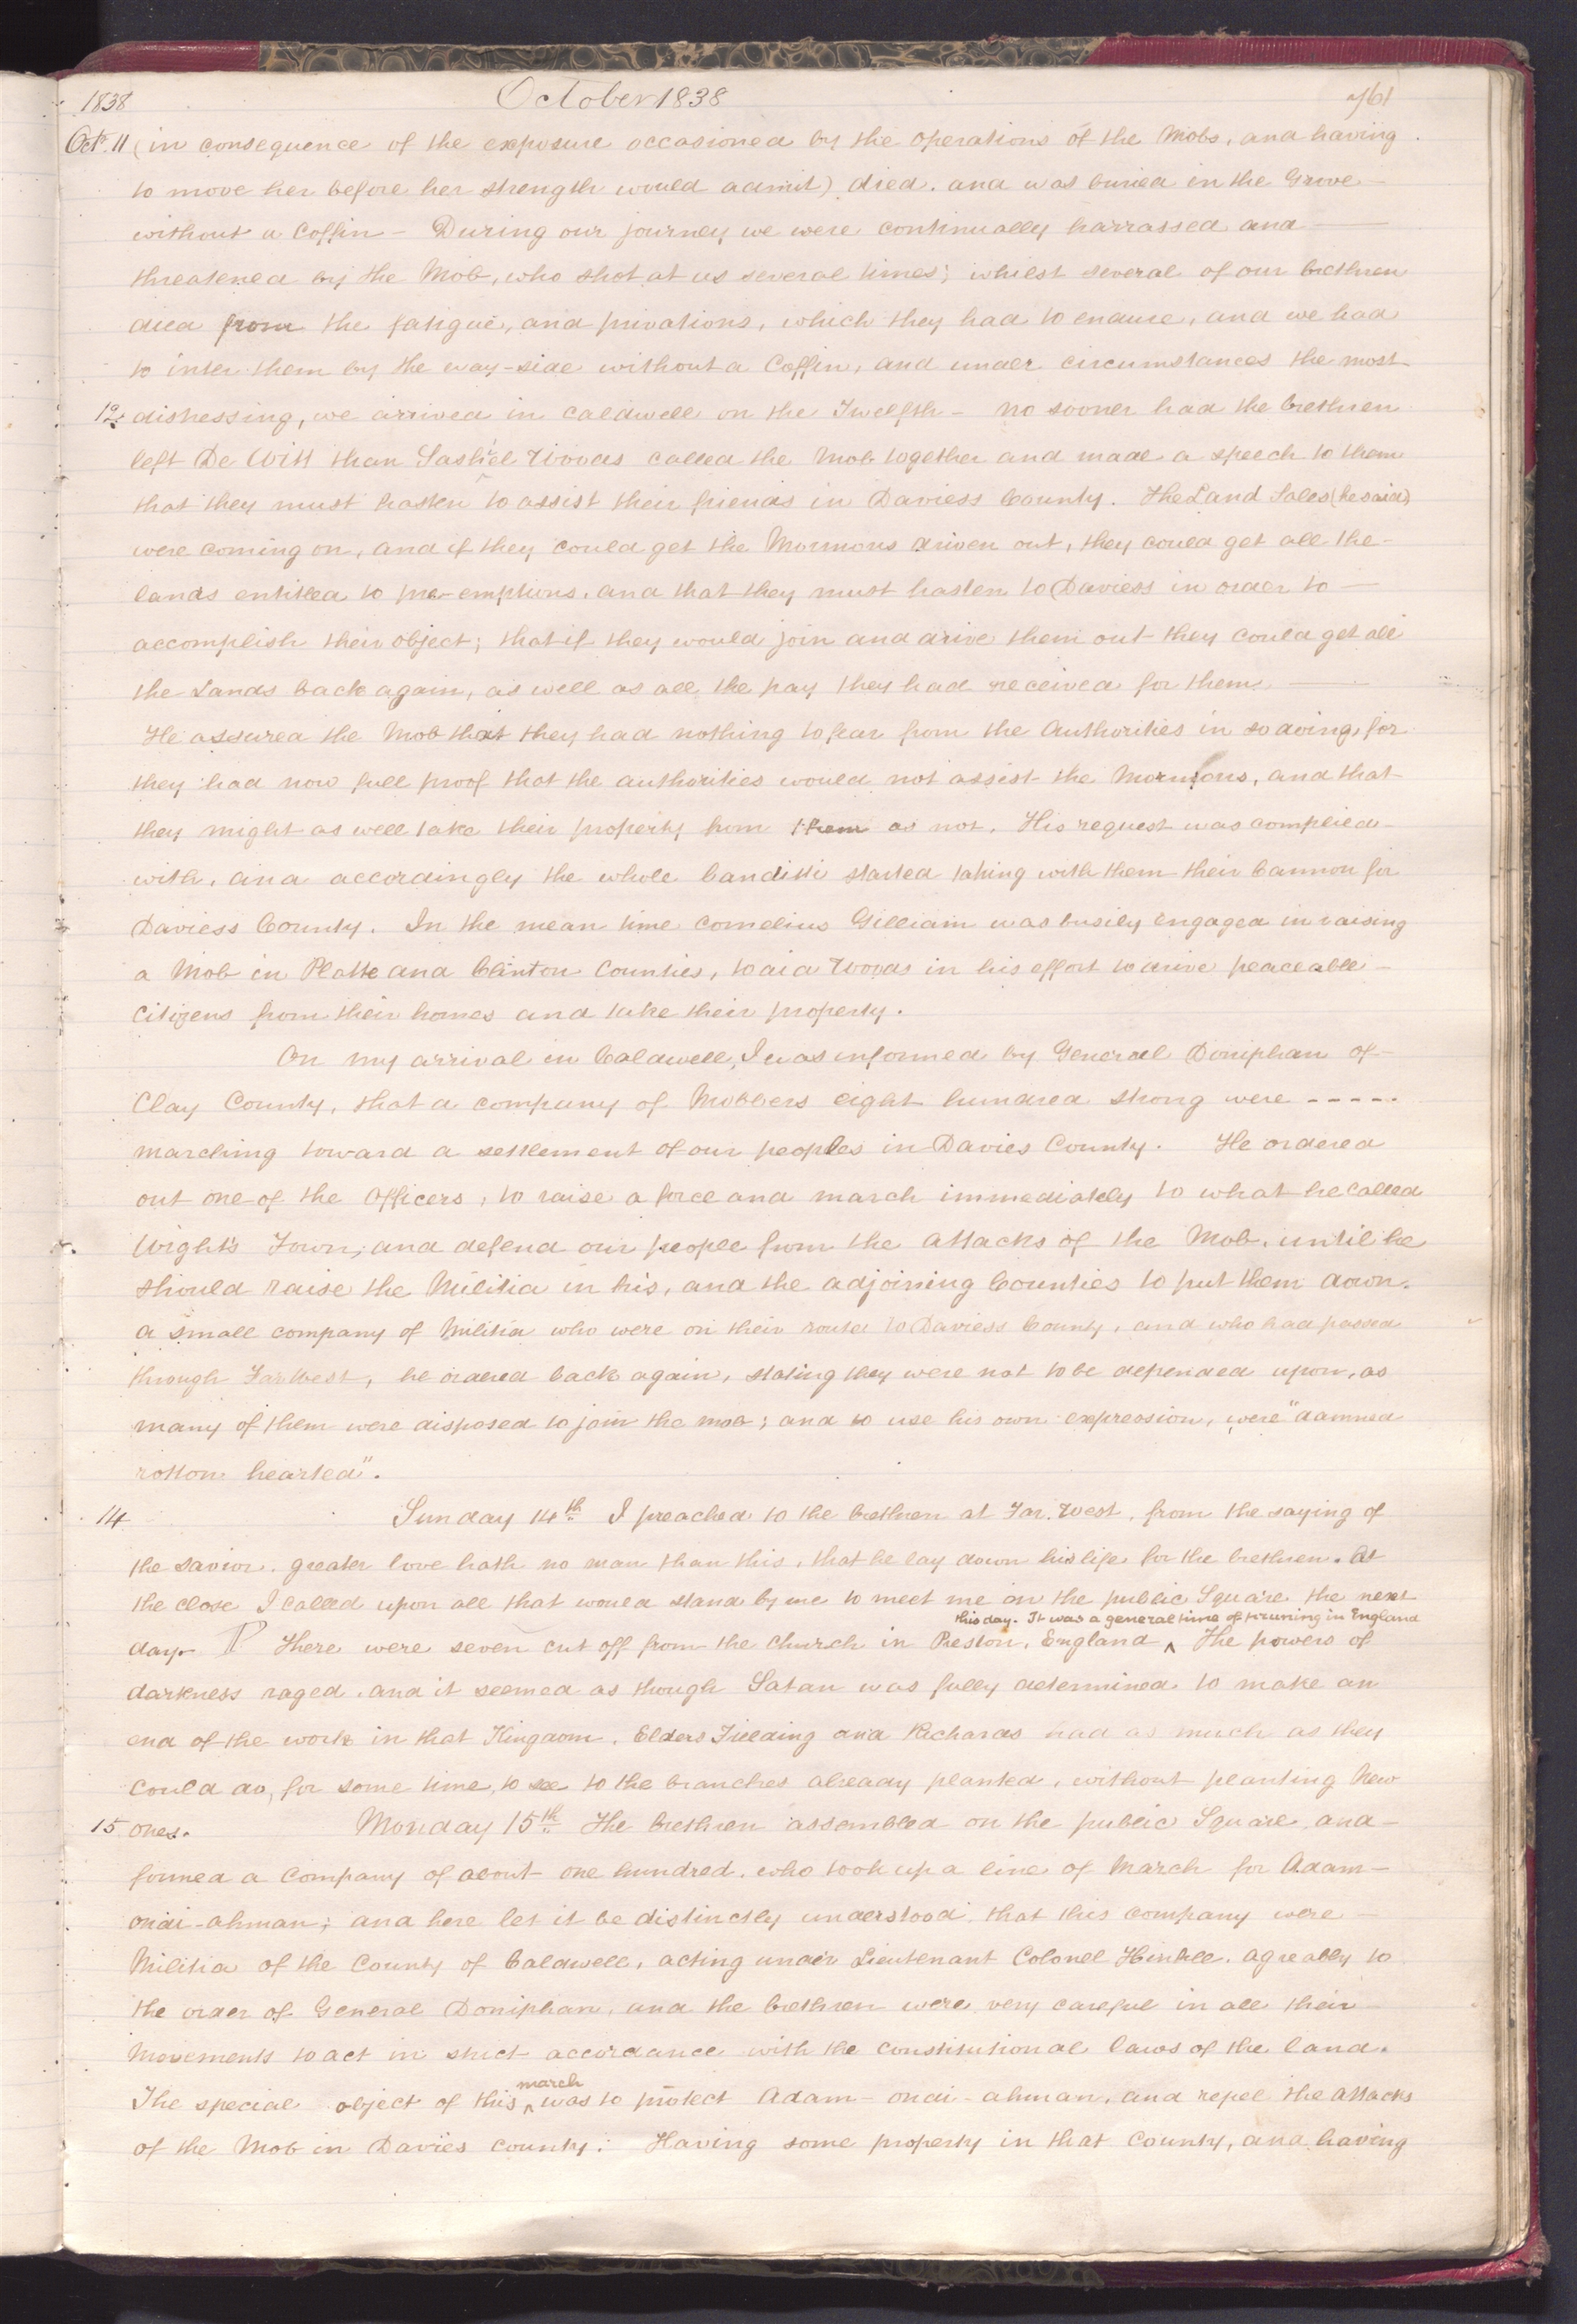 1838 October 1838 761
Oct. 11 (in consequence of the exposure occasioned by the operations of the Mobs, and having
to move her before her strength would admit) died, and was buried in the Grove
without a Coffin — During our journey we were continually harrassed and
threatened by the Mob, who shot at us several times; whilst several of our brethren
died from the fatigue, and privations, which they had to endure, and we had
to inter them by the way-side without a Coffin, and under circumstances the most
12 distressing, we arrived in Caldwell on the Twelfth — no sooner had the brethren
left De Witt than Sashiel Woods called the Mob together and made a speech to them
that they must hasten to assist their friends in Daviess County. The Land Sales (he said)
were coming on, and if they could get the Mormons driven out, they could get all the
lands entitled to pre-emptions, and that they must hasten to Daviess in order to
accomplish their object; that if they would join and drive them out they could get all
the Lands back again, as well as all the pay they had received for them.
He assured the Mob that they had nothing to fear from the Authorities in so doing, for
they had now full proof that the authorities would not assist the Mormons, and that
they might as well take their property from them as not. His request was complied
with, and accordingly the whole banditti started taking with them their Cannon for
Daviess County. In the mean time Cornelius Gilliam was busily engaged in raising
a Mob in Platte and Clinton Counties, to aid Woods in his effort to drive peaceable
Citizens from their homes and take their property.
On my arrival in Caldwell, I was informed by General Doniphan of
Clay County, that a company of Mobbers eight hundred strong were -----
marching toward a settlement of our peoples in Davies County. He ordered
out one of the Officers, to raise a force and march immediately to what he called
Wight's Town, and defend our people from the attacks of the Mob, until he
should raise the Militia in his, and the adjoining Counties to put them down.
A small company of Militia who were on their route to Daviess County, and who had passed
through Far West, he ordered back again, stating they were not to be depended upon, as
many of them were disposed to join the mob; and to use his own expression, were "damned
rotton hearted".
14 Sunday 14th I preached to the brethren at Far West, from the saying of
the Savior, greater love hath no man than this, that he lay down his life for the brethren. At
the close I called upon all that would stand by me to meet me on the public Square the next
this day. It was a general time of pruning in England
day. ¶ There were seven cut off from the Church in Preston, England ^ The powers of
darkness raged, and it seemed as though Satan was fully determined to make an
end of the work in that Kingdom. Elders Fielding and Richards had as much as they
could do, for some time, to see to the branches already planted, without planting New
15 ones. Monday 15th The brethren assembled on the public Square, and
formed a Company of about one hundred, who took up a line of March for Adam-
ondi-ahman; and here let it be distinctly understood, that this company were
Militia of the County of Caldwell, acting under Lieutenant Colonel Hinkle, agreably to
the order of General Doniphan, and the brethren were very careful in all their
Movements to act in strict accordance with the constitutional laws of the land.
march
The special object of this ^ was to protect Adam-ondi-ahman, and repel the attacks
of the Mob in Davies county. Having some property in that County, and having